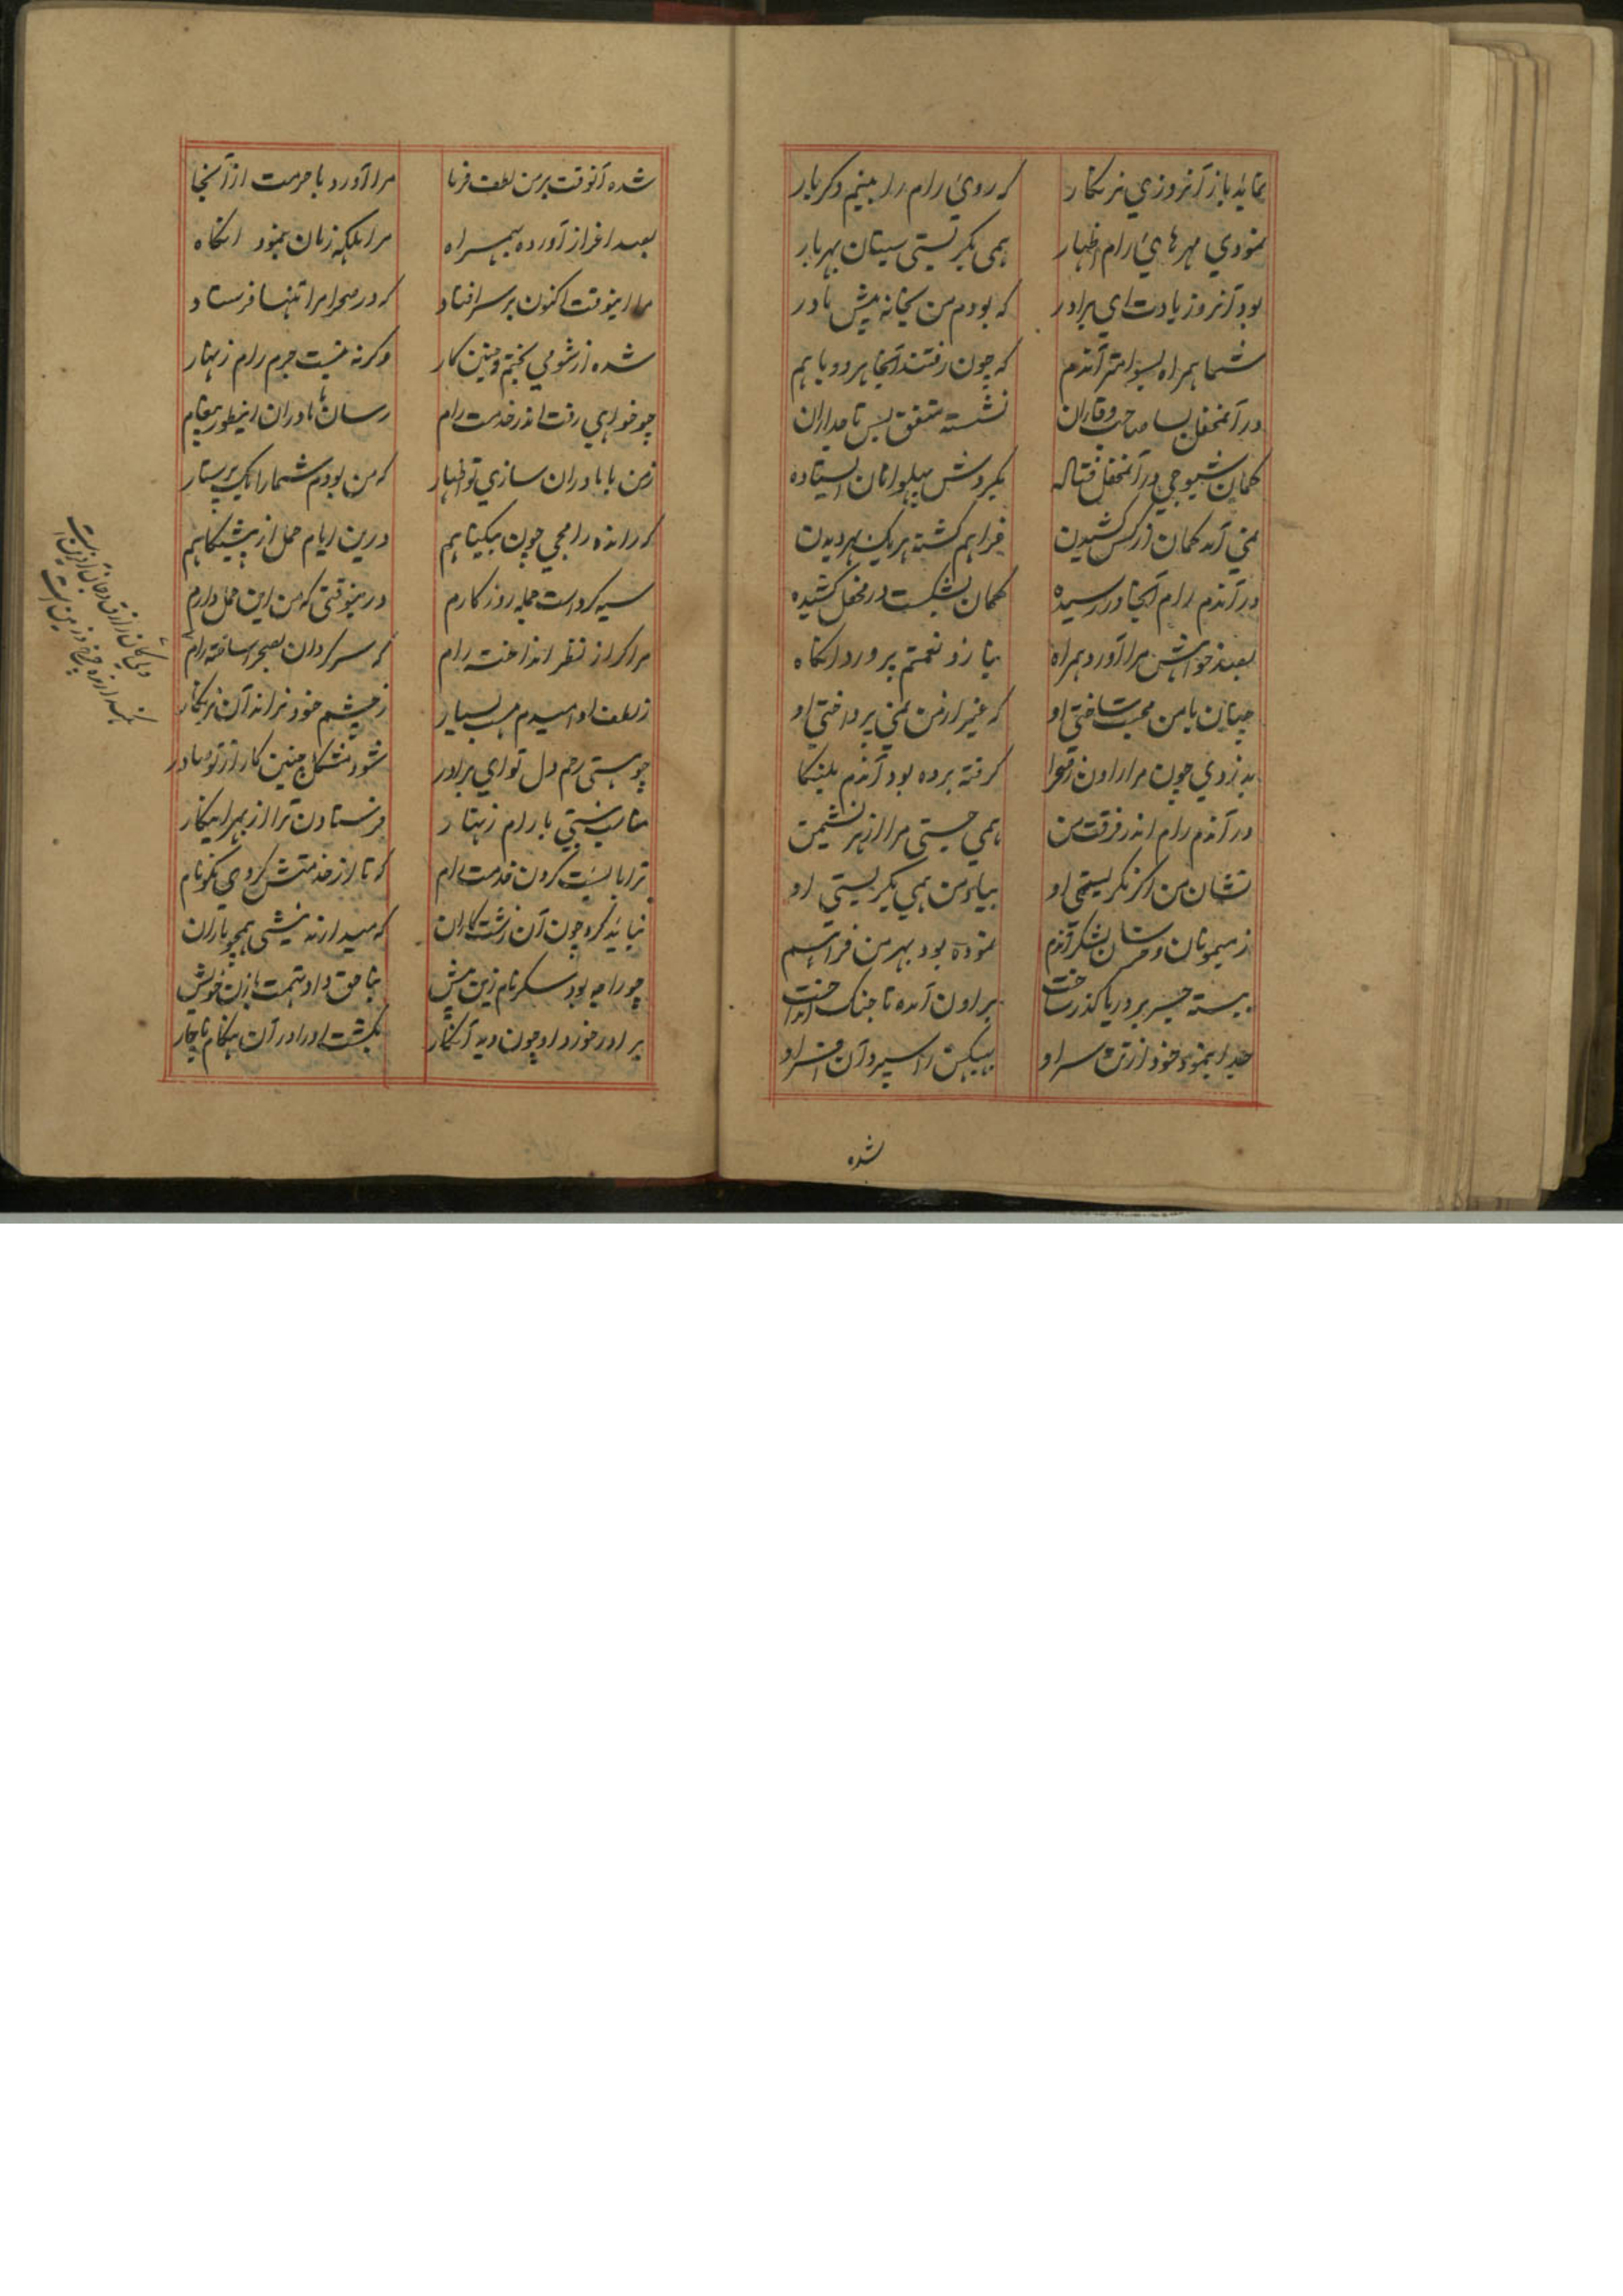 نماید باز آنروزی نرنکار که روی رام را بینم دگر بار
نمودی مهرهای رام اظهار همی بگریستی سیتان بهر بار
بود آنروز یادت ای برادر که بودم من بخانه پیش مادر
شما همراه بسوامتر آندم که چون رفتند آنجا هر دو با هم
در آنمحفل بسا صاحب وقاران نشسته متفق بس تاجداران
کمان شیوجی در آنمحفل فتاده بگردش پهلوانان ایستاده
نمی آمد کمان از کس کشیدن فراهم گشته هر یک بهر دیدن
در آندم رام آنجا در رسیده کمان بشکست در محفل کشیده
بعد خواهش مرا آورد همراه بناز و نعمتم پرورد آنگاه
چنان با من محبت ساختی او که غیر از من نمی پرداختی او
بدزدی چون مرا راون ز صحرا گرفته برده بود آندم بلنکا
در آندم رام اندر فرقت من همی جستی مرا از بهر
نشان من اگر نگریستی او بیاد من همی بگریستی او
ز میمونان و خرسان لشکر آندم نموده بود بهر من فراهم
ببسته جسر بر دریا گذر ساخت بر راون آمده تا جنگ انداخت
جدا بنمود خود از تن سر او ببهیکن را سپرد آن افسر او
شده
شده آنوقت بر من لطف فرما مرا آورد با حرمت از آنجا
بعد اعزاز آورده بهمراه مرا ملکه زنان بنمود آنگاه
مرا اینوقت اکنون بر سر افتاد که در صحرا مرا تنها فرستاد
شده از شومی بختم چنین کار وگرنه نیست جرم رام زنهار
چو خواهی رفت اندر خدمت رام رسان با مادران اینطور پیغام
ز من با مادران سازی تو اظهار که من بودم شما را یک پرستار
که رانده رامجی چون بیگناهم درین ایام حمل از پیشگاهم
سیه کرد است جمله روزگارم درینوقتی که من این حمل دارم
مرا گر از نظر انداخته رام که سرگردان بصحرا ساخته رام
ز لطف او امیدم هست بسیار ز چشم خود نراند آن نرنکار
چو هستی رحم دل تو ای برادر شود مشکل چنین کار از تو صادر
مناسب نیستی با رام زنهار فرستادن ترا از بهر اینکار
ترا بایست کردن خدمت رام که تا از خدمتش گردی نکونام
نباید کرد چون آن زشت کاران که میدارند نیشی همچو ماران
چو راجه بود سکر نام زین پیش بناحق داد تهمت با زن خویش
برادر خورد او چون دید آنکار بکشت او را در آن هنگام ناچار